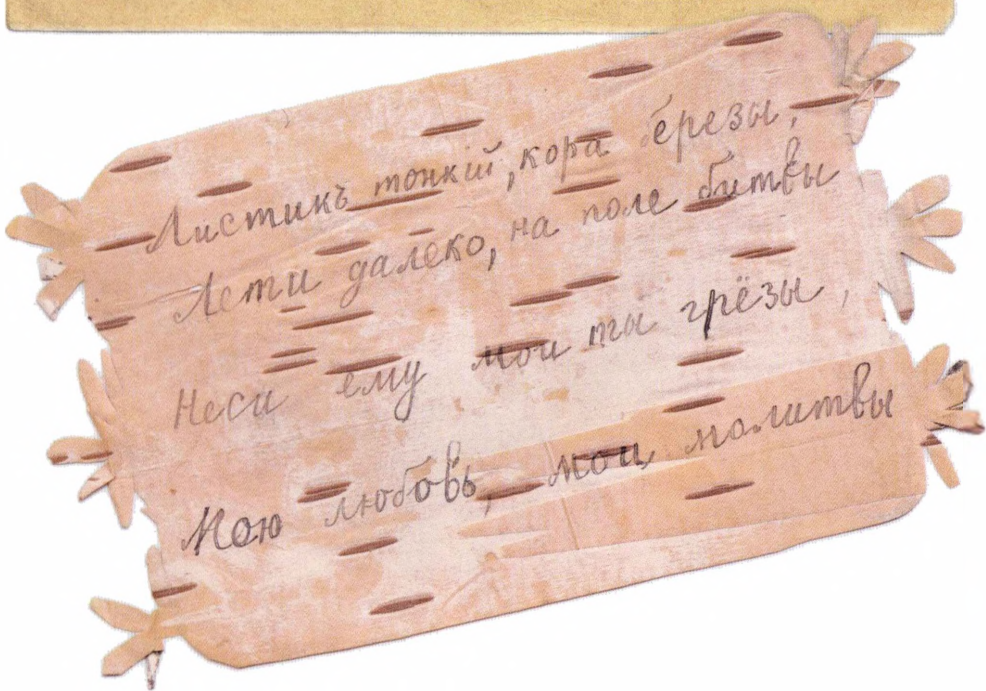 Листикъ тонкій, кора березы,
Лети далеко, на поле битвы
Неси ему мои ты грёзы,
Мою любовь, мои молитвы